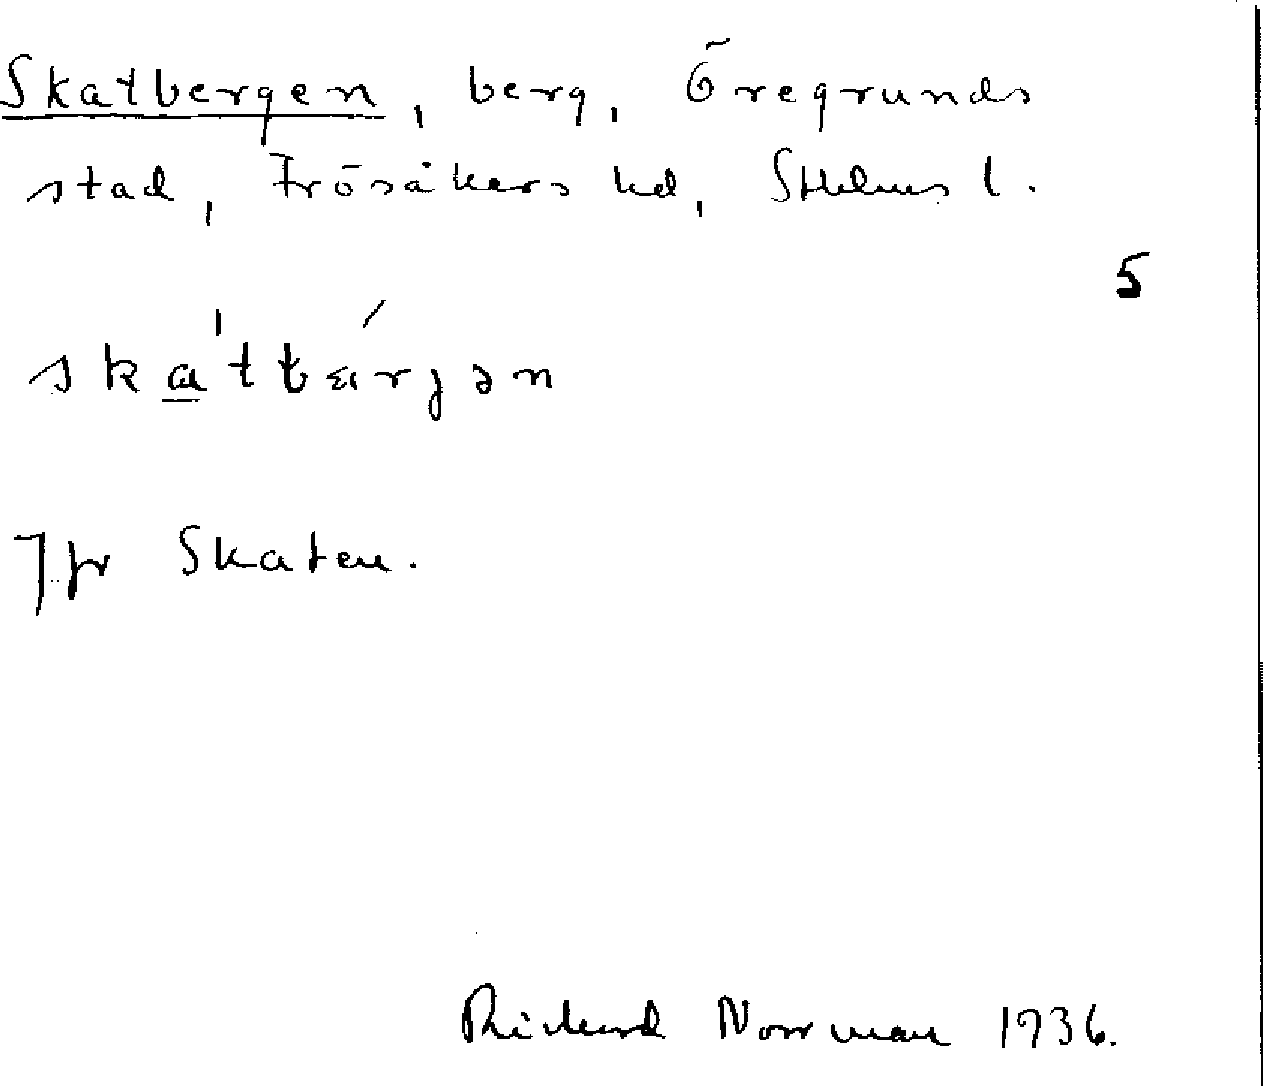 Skatbergen, berg, Öregrunds
stad, Frösåkers hd, Sthlms l.
5
Jfr Skaten.
Rickard Norrman 1936.